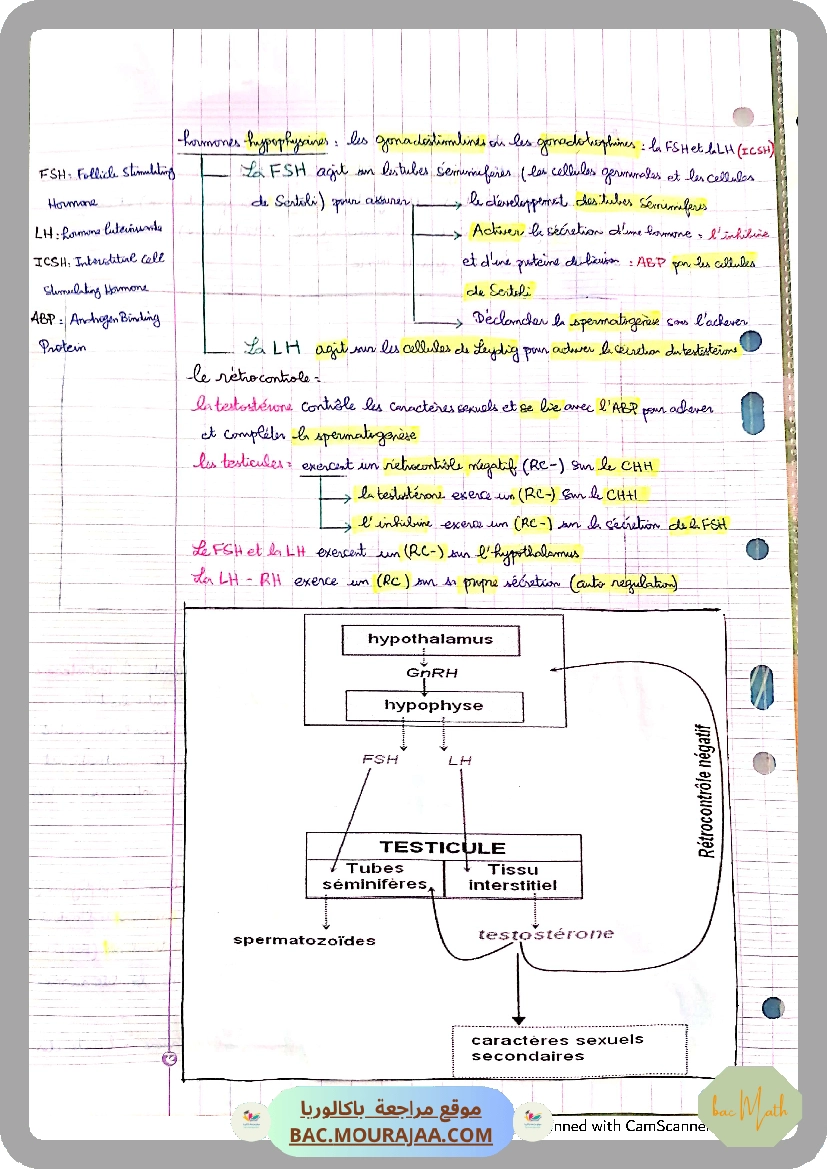 hormones hypophysaires : les gonadostimulines ou les gonadotrophines : la FSH et la LH (ICSH)
FSH : Follicle Stimulating
Hormone
LH : hormone luteinisante
ICSH : Interstitial Cell
Stimulating Hormone
ABP : Androgen Binding
Protein
La FSH agit sur les tubes séminifères (les cellules germinales et les cellules
de Sertoli) pour assurer
le développement des tubes séminifères
Activer la sécrétion d'une hormone : l'inhibine
et d'une protéine de liaison : ABP par les cellules
de Sertoli
Déclancher la spermatogenèse sans l'achever
La LH agit sur les cellules de Leydig pour activer la sécretion de testostérone
le rétrocontrole :
la testostérone contrôle les caractères sexuels et se lie avec l'ABP pour achever
et compléter la spermatogenèse
les testicules : exercent un rétrocontrôle négatif (RC-) sur le CHH
la testostérone exerce un (RC-) sur le CHH
l'inhibine exerce un (RC-) sur la sécrétion de la FSH
La FSH et la LH exercent un (RC-) sur l'hypothalamus
La LH - RH exerce un (RC) sur sa propre sécrétion (auto regulation)
hypothalamus
GnRH
hypophyse
FSH LH
Rétrocontrôle négatif
TESTICULE
Tubes
séminifères
Tissu
interstitiel
spermatozoïdes
testostérone
caractères sexuels
secondaires
موقع مراجعة باكالوريا
BAC.MOURAJAA.COM
nned with CamScanner
bac Math